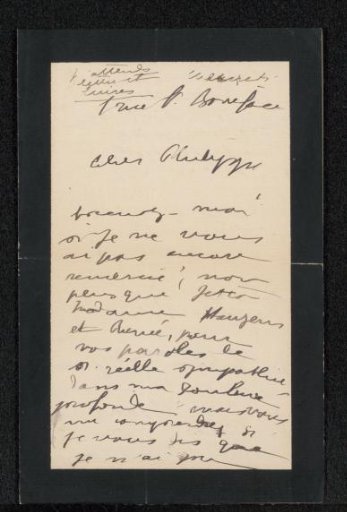 attends
lettre et
1 rue St. Boniface
Cher Philippe
excusez-moi
si je ne vous
ai pas encore
remercié, non
plus que
Madame
et pour
vos paroles de
si réelle sympathie
dans ma douleur
profonde vous
me comprendrez si
je vous dis que
je n'ai pu